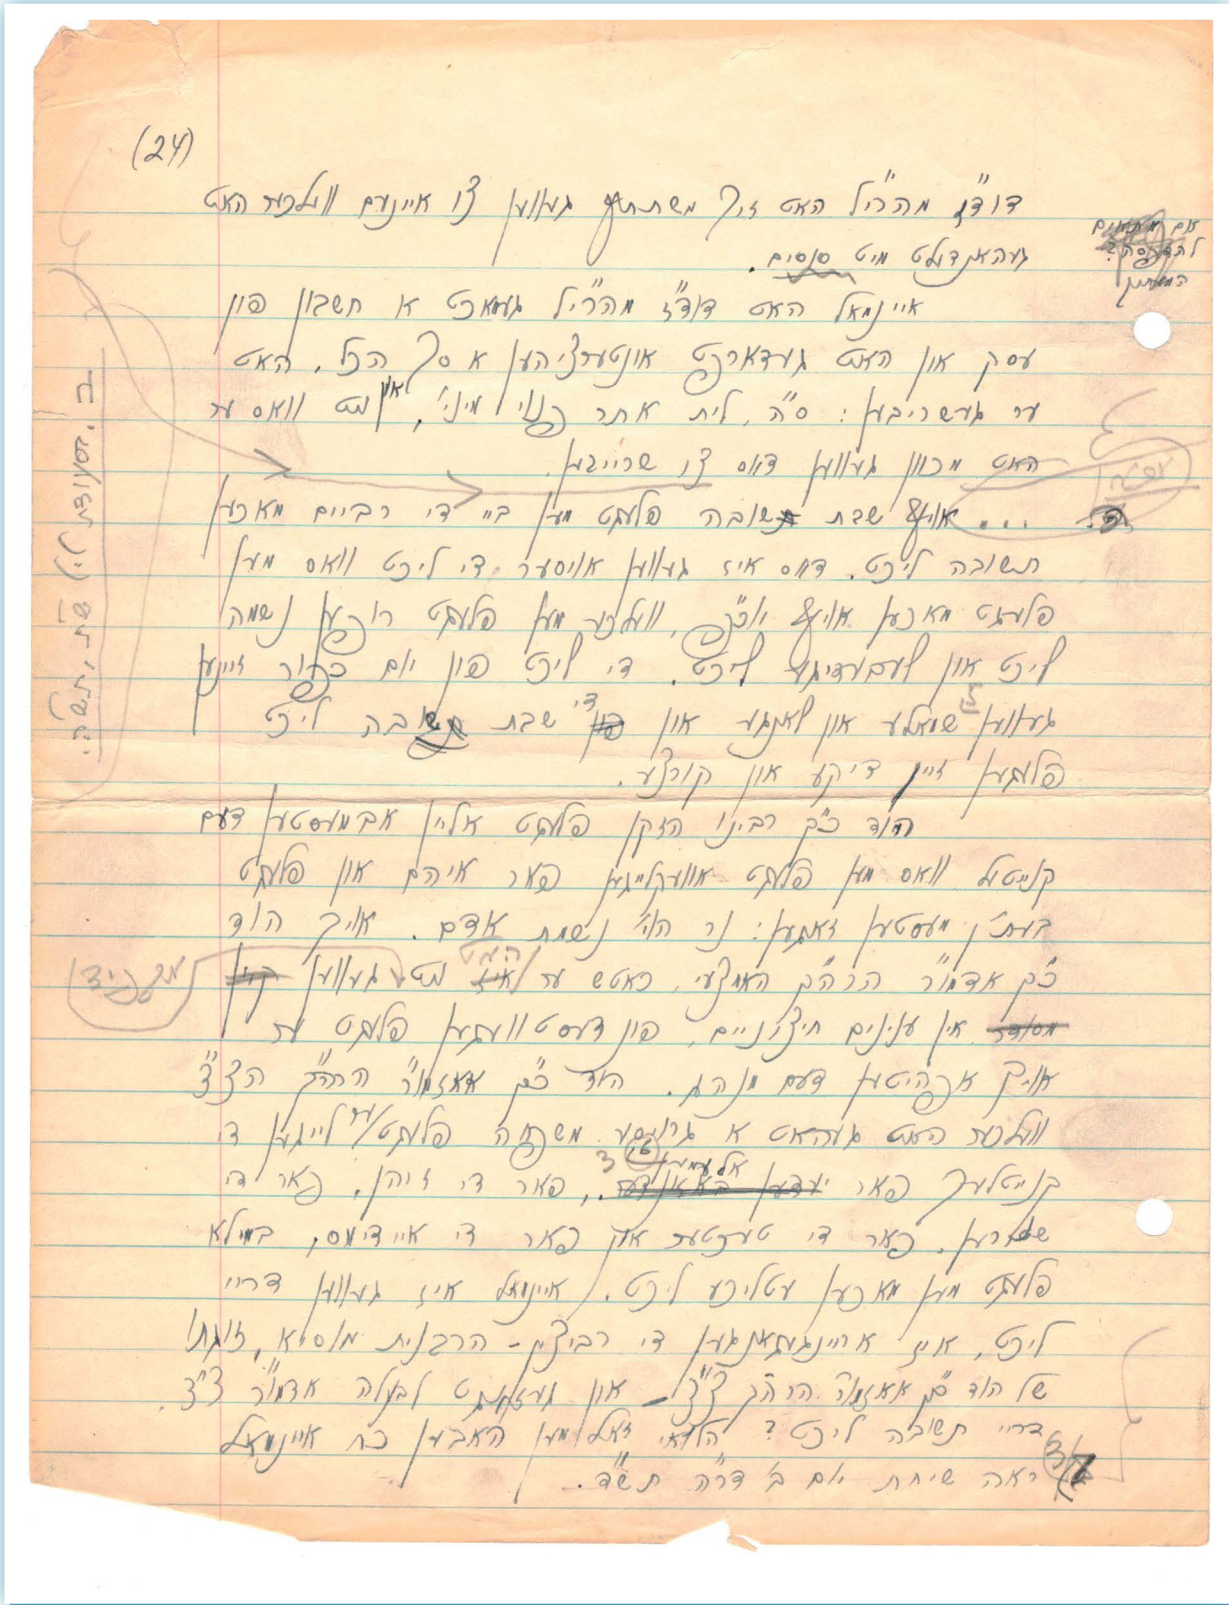 (24)
דודז מהרי"ל האט זיך משתתף געווען צו איינעם וועלכער האט
געהאנדעלט מיט סוסים.
איינמאל האט דודז מהרי"ל געמאכט א חשבון פון
עסק און האט געדארפט אונטערציהען א סך הכל, האט
ער געשריבען: ס"ה, לית אתר פנוי מיני', און ניט וואס ער
האט מכוון געווען דאס צו שרייבען.
... אויף שבת תשובה פלעגט מען ביי די רביים מאכען
תשובה ליכט. דאס איז געווען אויסער די ליכט וואס מען
פלעגט מאכען אויף יוכ"פ, וועלכע מען פלעגט רופען נשמה
ליכט און לעבעדיגע ליכט. די ליכט פון יום כפור זיינען
געווען שמאלע און לאנגע און די שבת תשובה ליכט
פלעגען זיין דיקע און קורצע.
הוד כ"ק רבינו הזקן פלעגט אליין אבמעסטען דעם
קנייטעל וואס מען פלעגט אוועקלייגען פאר איהם און פלעגט
בעת'ן מעסטען זאגען: נר הוי' נשמת אדם. אויך הוד
כ"ק אדמו"ר הרה"ק האמצעי, כאטש ער האט ניט געווען מקפיד
אין ענינים חיצוניים, פון דעסטוועגען פלעגט ער
אויך אפהיטען דעם מנהג. הוד כ"ק אאזמו"ר הרה"ק הצ"צ
וועלכער האט געהאט א גרויסע משפחה פלעגט ער לייגען די
קנייטלעך פאר אלעמען, פאר די זיהן, פאר די
שנורען, פאר די טעכטער און פאר די איידימס, במילא
פלעגט מען מאכען עטליכע ליכט. איינמאל איז געווען דריי
ליכט, איז אריינגעגאנגען די רביצין - הרבנית מוסיא, זוגתו
של הוד כ"ק אאזמו"ר הרה"ק צ"צ - און געזאגט לבעלה אדמו"ר צ"צ.
דריי תשובה ליכט? הלואי זאל מען האבען כח איינמאל
ראה שיחת יום ב' דר"ה תש"ד.
ב, בסעודת ליל ש"ת, תש"ה.